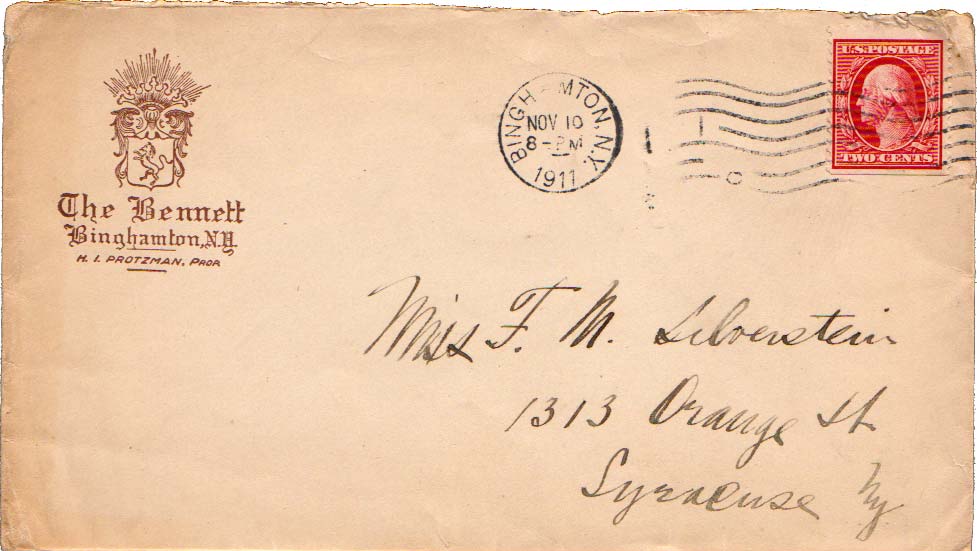 The Bennett
Binghamton, N.Y.
H. I. PROTZMAN, PROP.
BINGHAMTON, N.Y.
NOV 10
8-PM
1911
U.S. POSTAGE
TWO CENTS
Miss F. M. Silverstein
1313 Orange St.
Syracuse Ny